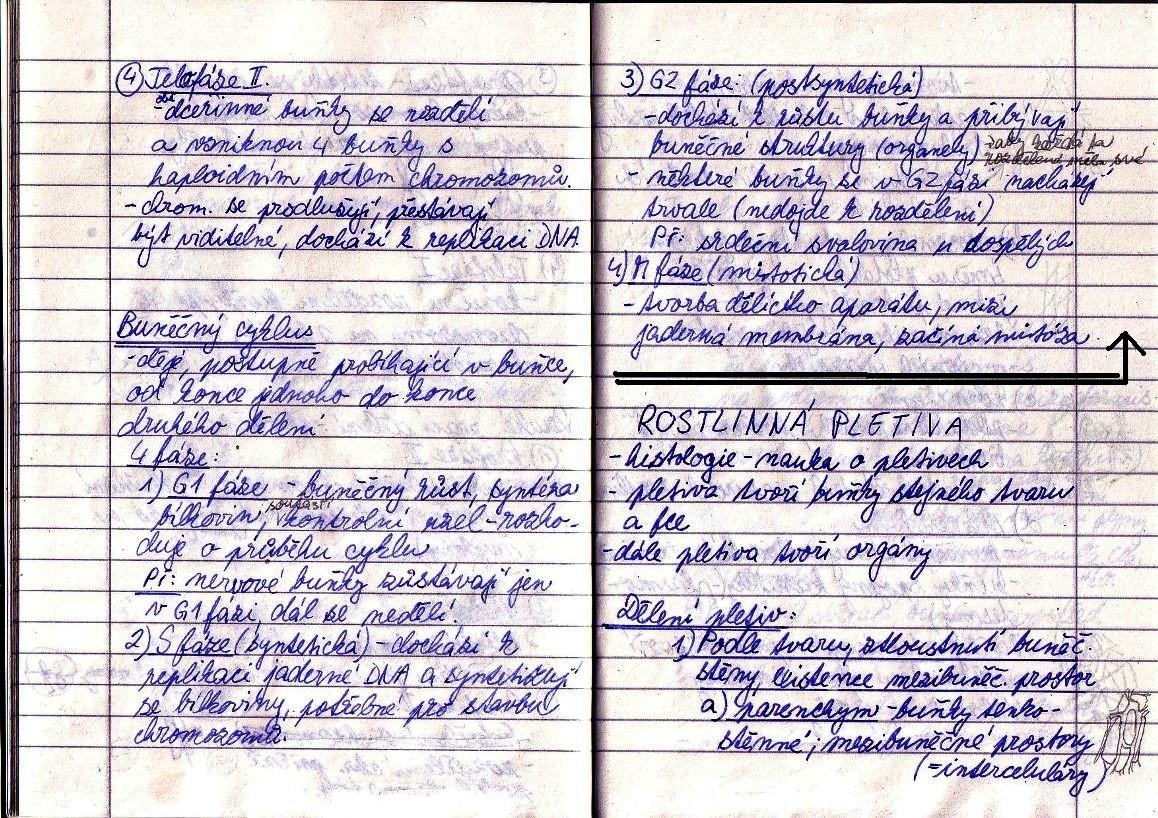 ④ Telofáze II.
obě
-dceřinné buňky se rozdělí
a vzniknou 4 buňky s
haploidním počtem chromozomů.
- chrom. se prodlužují, přestávají
být viditelné, dochází k replikaci DNA.
Buněčný cyklus
-děj, postupně probíhající v buňce,
od konce jednoho do konce
druhého dělení
4 fáze:
1) G1 fáze - buněčný růst, syntéza
bílkovin, součástí kontrolní uzel - rozho-
duje o průběhu cyklu
Př: nervové buňky zůstávají jen
v G1 fázi, dál se nedělí.
2) S fáze (syntetická) - dochází k
replikaci jaderné DNA a syntetizují
se bílkoviny, potřebné pro stavbu
chromozomů.
3) G2 fáze: (postsyntetická)
-dochází k růstu buňky a přibývají
buněčné struktury (organely) →aby každá
- některé buňky se v G2 fázi nacházejí
trvale (nedojde k rozdělení)
Př: srdeční svalovina u dospělých
4) M fáze (mitotická)
- tvorba dělícího aparátu, mizí
jaderná membrána, začíná mitóza
ROSTLINNÁ PLETIVA
- histologie - nauka o pletivech
- pletiva tvoří buňky stejného tvaru
a fce
-dále pletiva tvoří orgány
Dělení pletiv:
1) Podle tvaru, ztloustnutí buněč.
stěny, existence mezibuněč. prostor
a) parenchym - buňky tenko-
stěnné; mezibuněčné prostory
(=interceluláry)